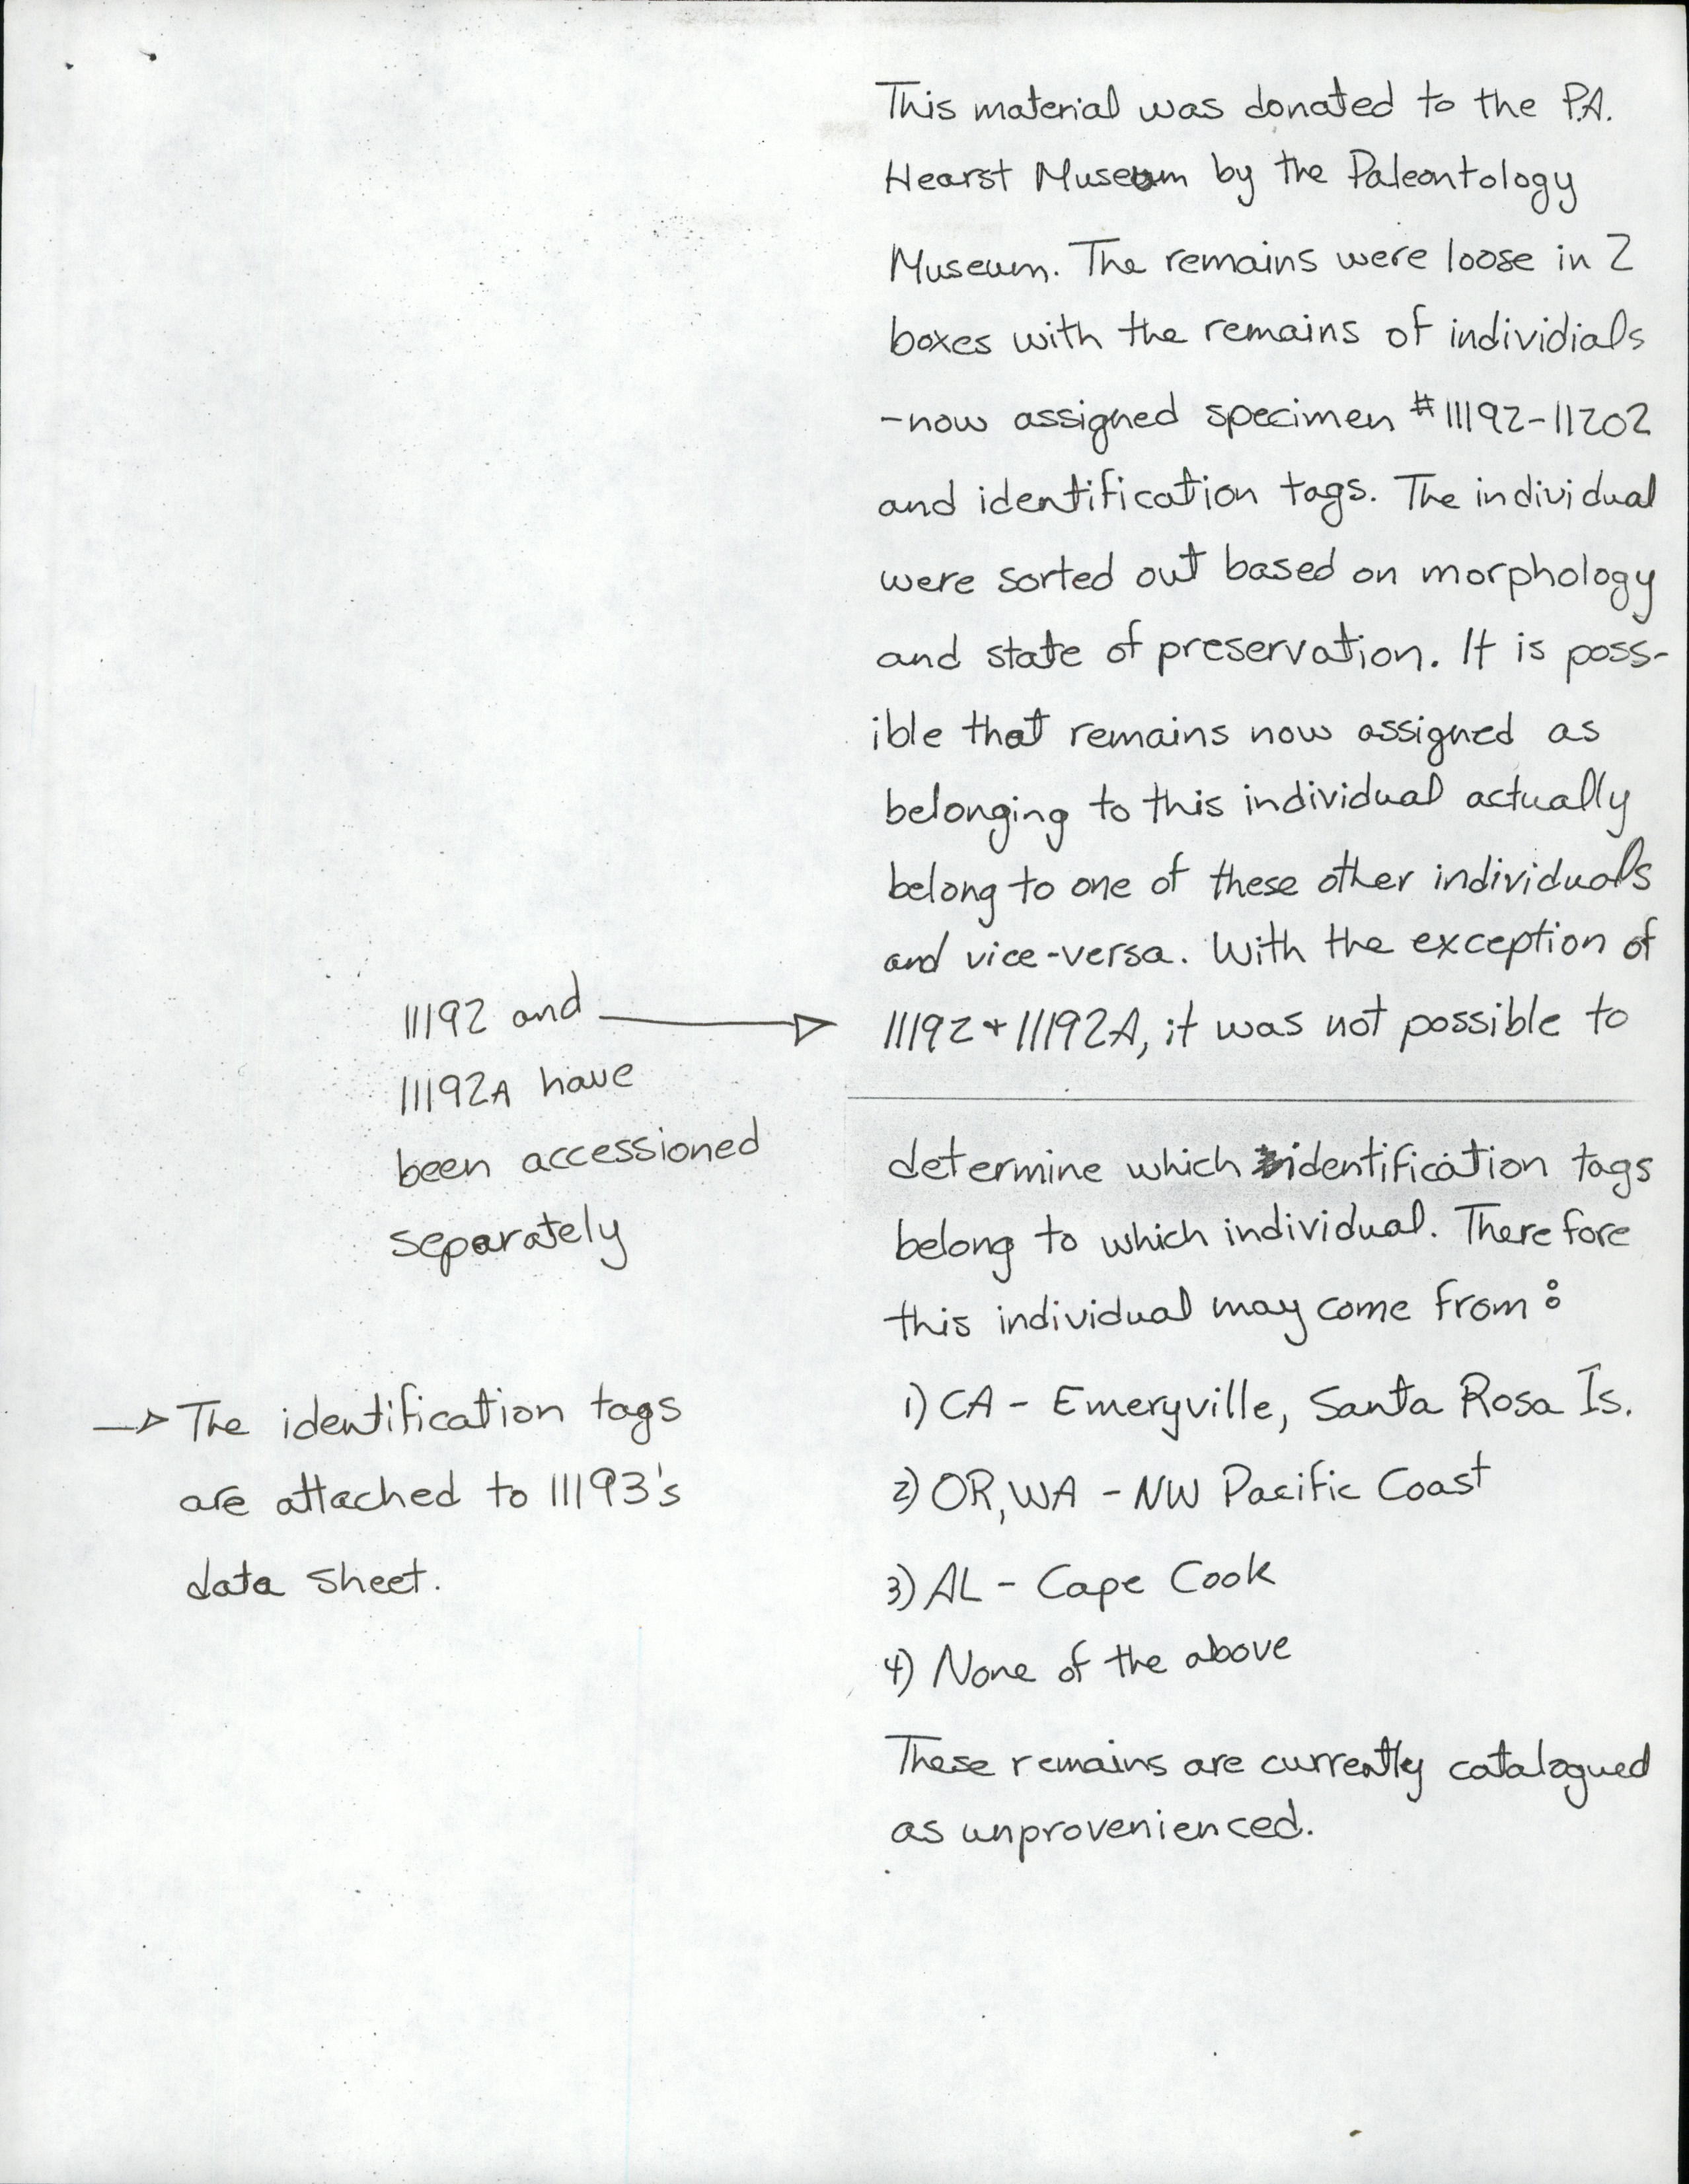 This material was donated to the P.A.
Hearst Museum by the Paleontology
Museum. The remains were loose in 2
boxes with the remains of individials
-now assigned specimen #11192-11202
and identification tags. The individual
were sorted out based on morphology
and state of preservation. It is poss-
ible that remains now assigned as
belonging to this individual actually
belong to one of these other individuals
and vice-versa. With the exception of
11192+11192A, it was not possible to
determine which identification tags
belong to which individual. Therefore
this individual may come from:
1) CA - Emeryville, Santa Rosa Is.
2) OR, WA - NW Pacific Coast
3) AL - Cape Cook
4) None of the above
These remains are currently catalogued
as unprovenienced.
11192 and
11192A have
been accessioned
separately
→ The identification tags
are attached to 11193's
data sheet.